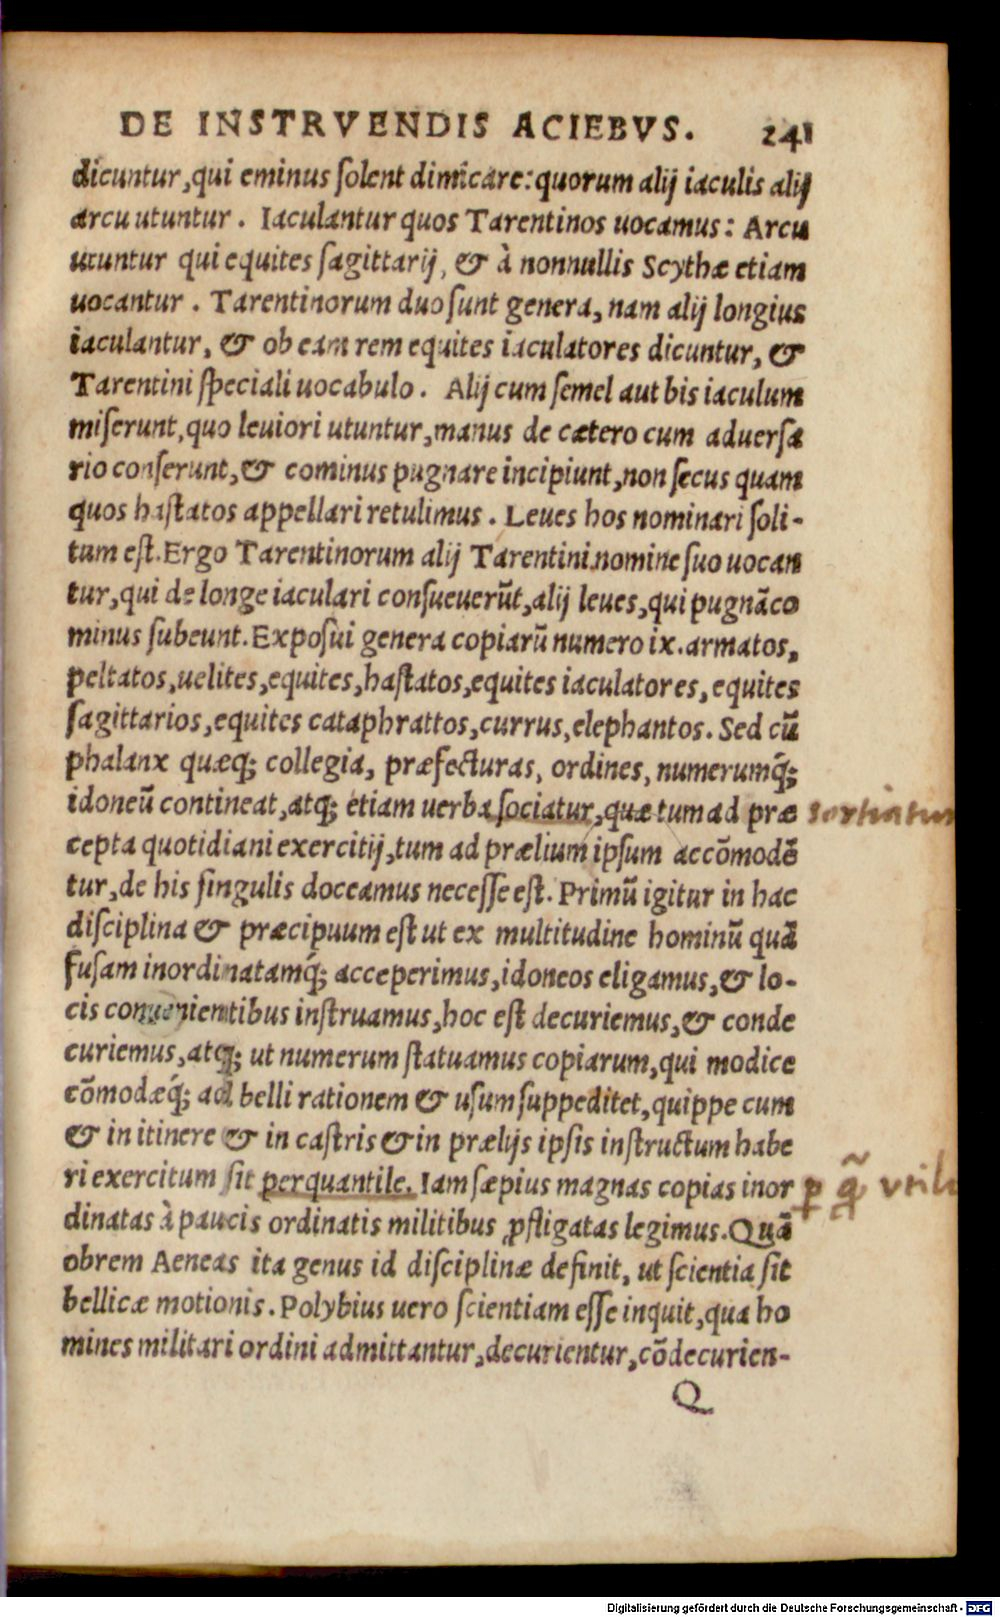 DE INSTRVENDIS ACIEBVS. 241
dicuntur, qui eminus ſolent dimicare: quorum alij iaculis alij
arcu utuntur. Iaculantur quos Tarentinos uocamus: Arcu
utuntur qui equites ſagittarij, & à nonnullis Scythæ etiam
uocantur. Tarentinorum duo ſunt genera, nam alij longius
iaculantur, & ob eam rem equites iaculatores dicuntur, &
Tarentini ſpeciali uocabulo. Alij cum ſemel aut bis iaculum
miſerunt, quo leuiori utuntur, manus de cætero cum aduerſa
rio conſerunt, & cominus pugnare incipiunt, non ſecus quam
quos haſtatos appellari retulimus. Leues hos nominari ſoli-
tum eſt. Ergo Tarentinorum alij Tarentini nomine ſuo uocan
tur, qui de longe iaculari conſueuerūt, alij leues, qui pugnā co
minus ſubeunt. Expoſui genera copiarū numero ix. armatos,
peltatos, uelites, equites, haſtatos, equites iaculatores, equites
ſagittarios, equites cataphrattos, currus, elephantos. Sed cū
phalanx quæq; collegia, præfecturas, ordines, numerumq́;
idoneū contineat, atq; etiam uerba ſociatur, quæ tum ad præ
sortiatur
cepta quotidiani exercitij, tum ad prælium ipſum accōmodē
tur, de his ſingulis doceamus neceſſe eſt. Primū igitur in hac
diſciplina & præcipuum eſt ut ex multitudine hominū quā
fuſam inordinatamq́; acceperimus, idoneos eligamus, & lo-
cis conuenientibus inſtruamus, hoc eſt decuriemus, & conde
curiemus, atq; ut numerum ſtatuamus copiarum, qui modice
cōmodæq́; ad belli rationem & uſum ſuppeditet, quippe cum
& in itinere & in caſtris & in prælijs ipſis inſtructum habe
ri exercitum ſit perquantile. Iam ſæpius magnas copias inor
dinatas à paucis ordinatis militibus ꝓfligatas legimus. Quā
obrem Aeneas ita genus id diſciplinæ definit, ut ſcientia ſit
bellicæ motionis. Polybius uero ſcientiam eſſe inquit, qua ho
mines militari ordini admittantur, decurientur, cōdecurien-
Q
Digitalisierung gefördert durch die Deutsche Forschungsgemeinschaft - DFG